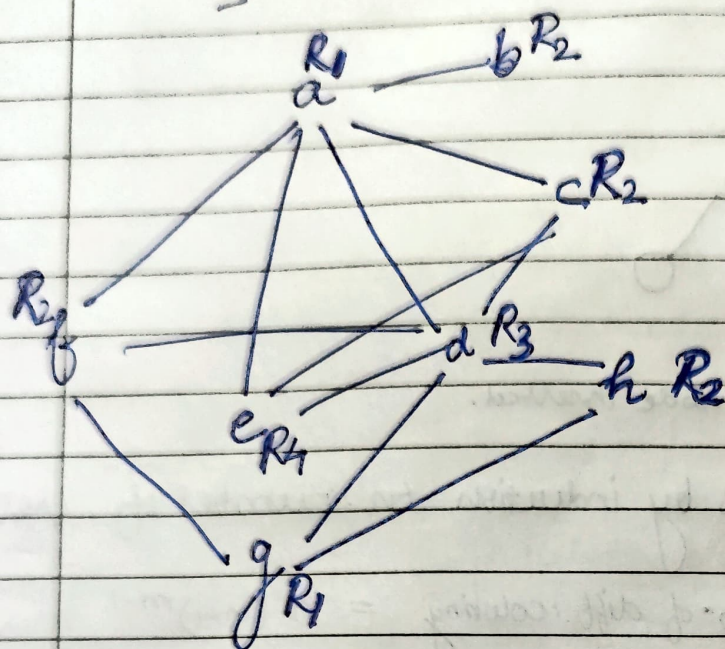 R1
a
b R2
c R2
R2
f
d R3
h R2
e R4
g R1